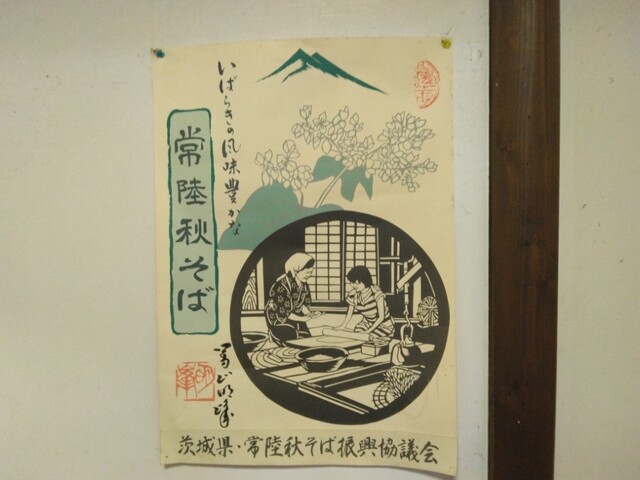 いばらきの風味豊かな
常陸秋そば
茨城県・常陸秋そば振興協議会